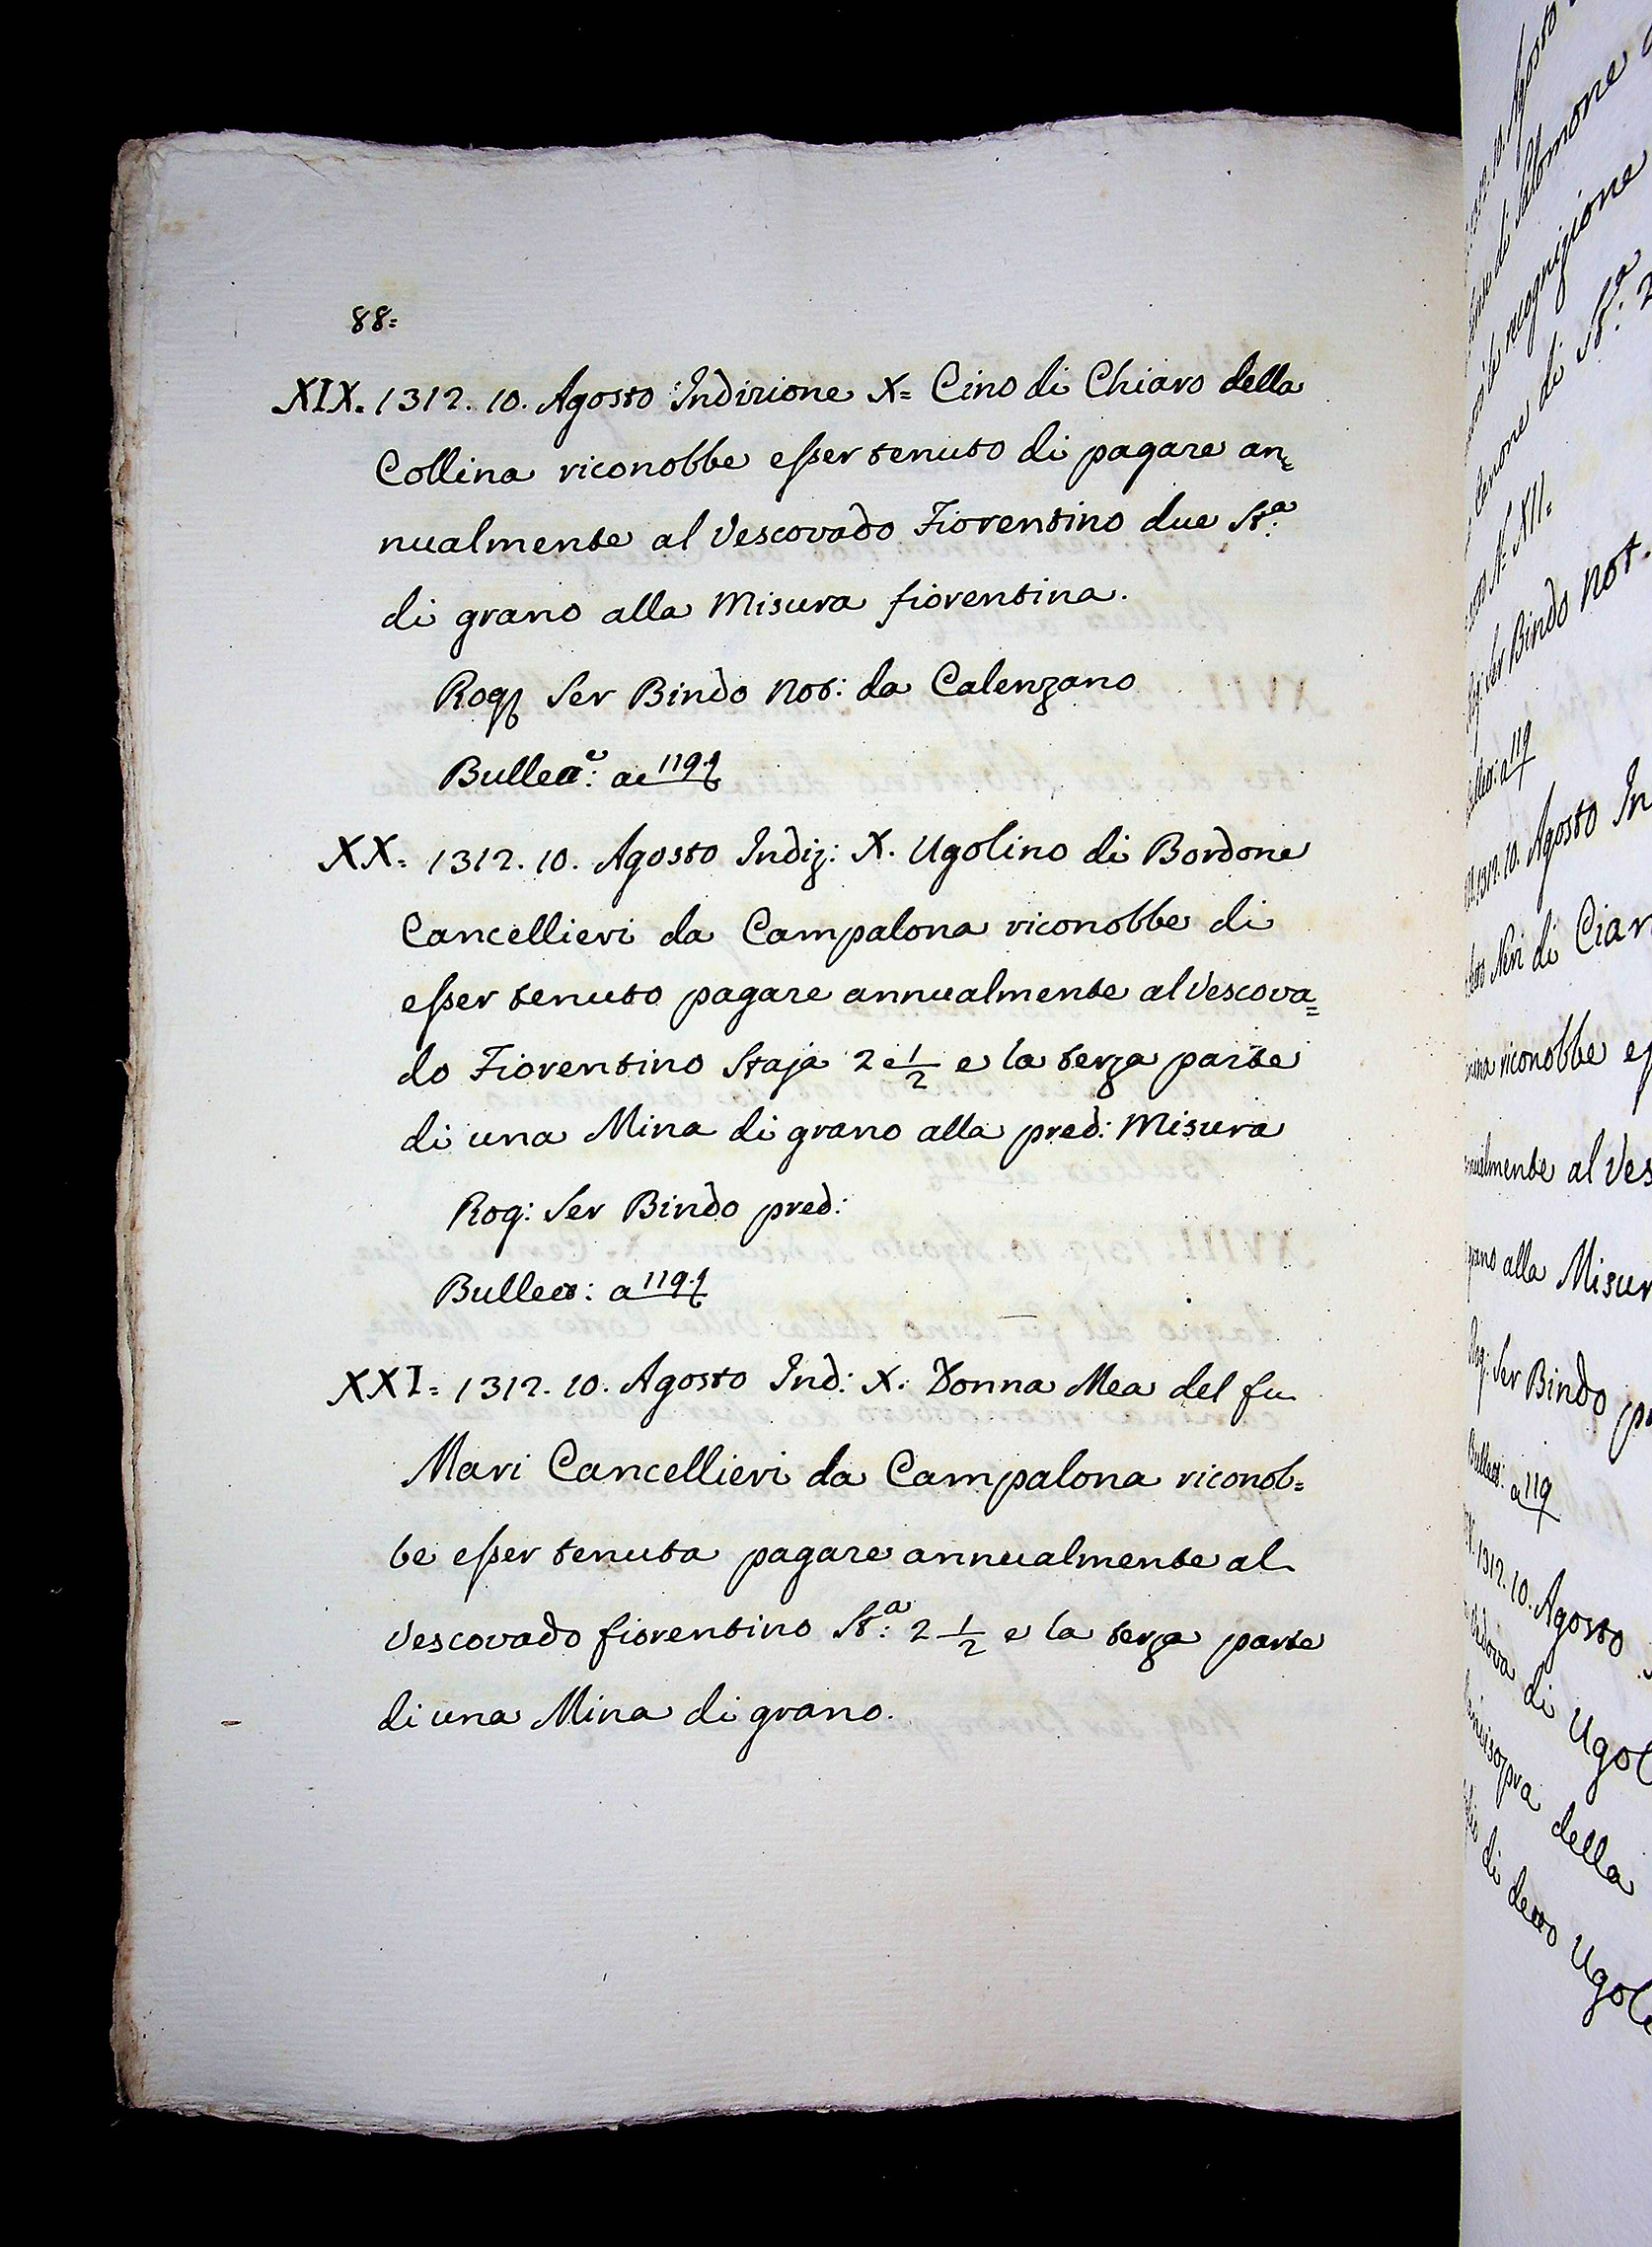 88=
XIX. 1312. 10. Agosto Indizione X= Cino di Chiaro della
Collina riconobbe esser tenuto di pagare an=
nualmente al Vescovado Fiorentino due St.ª
di grano alla Misura fiorentina.
Rog. Ser Bindo Not: da Calenzano
Bullett: a 119.
XX= 1312. 10. Agosto Indiz: X. Ugolino di Bordone
Cancellieri da Campalona riconobbe di
esser tenuto pagare annualmente al Vescova=
do Fiorentino Staja 2 e 1/2 e la terza parte
di una Mina di grano alla pred: Misura
Rog: Ser Bindo pred:
Bullett: a 119.
XXI= 1312. 10. Agosto Ind: X. Donna Mea del fu
Mari Cancellieri da Campalona riconob=
be esser tenuta pagare annualmente al
Vescovado fiorentino St:ª 2 1/2 e la terza parte
di una Mina di grano.
10. Agosto
di Salomone
recognizione
di St:ª 2
Ser Bindo Not.
Bullett: a 119
1312. 10. Agosto In
Neri di Cian
riconobbe es
al Ves
alla Misur
Rog: Ser Bindo pr
Bullett: a 119
1312. 10. Agosto
di Ugol
della
di detto Ugol